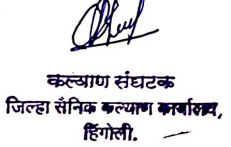 कल्याण संघटक
जिल्हा सैनिक कल्याण कार्यालय,
हिंगोली.